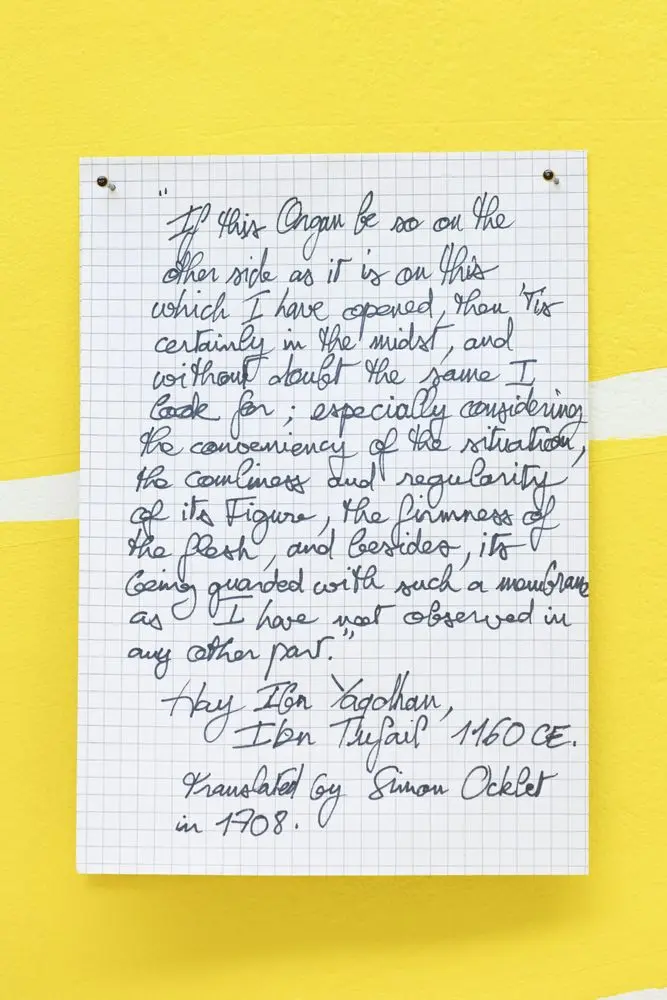 "
If this Organ be so on the
other side as it is on this
which I have opened, then 'Tis
certainly in the midst, and
without doubt the same I
look for; especially considering
the conveniency of the situation,
the comliness and regularity
of its Figure, the firmness of
the flesh, and besides, its
being guarded with such a membrane
as I have not observed in
any other part."
Hay Ibn Yaqdhan,
Ibn Tufail 1160 CE.
translated by Simon Ocklet
in 1708.